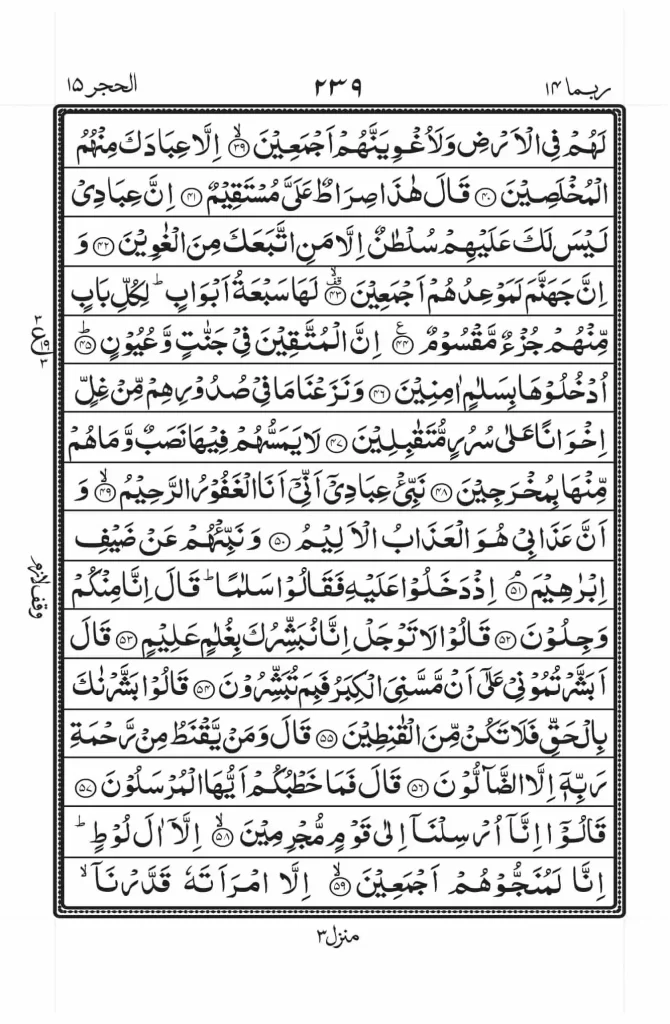 ربما ١٤ ٢٣٩ الحجر ١٥
لَهُمْ فِی الْاَرْضِ وَلَاُغْوِیَنَّهُمْ اَجْمَعِیْنَ ۙ﴿۳۹﴾ اِلَّا عِبَادَكَ مِنْهُمُ
الْمُخْلَصِیْنَ ﴿۴۰﴾ قَالَ هٰذَا صِرَاطٌ عَلَیَّ مُسْتَقِیْمٌ ﴿۴۱﴾ اِنَّ عِبَادِیْ
لَیْسَ لَكَ عَلَیْهِمْ سُلْطٰنٌ اِلَّا مَنِ اتَّبَعَكَ مِنَ الْغٰوِیْنَ ﴿۴۲﴾ وَ
اِنَّ جَهَنَّمَ لَمَوْعِدُهُمْ اَجْمَعِیْنَ ﴿۴۳﴾ لَهَا سَبْعَةُ اَبْوَابٍ ؕ لِكُلِّ بَابٍ
مِّنْهُمْ جُزْءٌ مَّقْسُوْمٌ ﴿۴۴﴾ اِنَّ الْمُتَّقِیْنَ فِیْ جَنّٰتٍ وَّعُیُوْنٍ ؕ﴿۴۵﴾
اُدْخُلُوْهَا بِسَلٰمٍ اٰمِنِیْنَ ﴿۴۶﴾ وَنَزَعْنَا مَا فِیْ صُدُوْرِهِمْ مِّنْ غِلٍّ
اِخْوَانًا عَلٰی سُرُرٍ مُّتَقٰبِلِیْنَ ﴿۴۷﴾ لَا یَمَسُّهُمْ فِیْهَا نَصَبٌ وَّمَا هُمْ
مِّنْهَا بِمُخْرَجِیْنَ ﴿۴۸﴾ نَبِّئْ عِبَادِیْۤ اَنِّیْۤ اَنَا الْغَفُوْرُ الرَّحِیْمُ ۙ﴿۴۹﴾ وَ
اَنَّ عَذَابِیْ هُوَ الْعَذَابُ الْاَلِیْمُ ﴿۵۰﴾ وَنَبِّئْهُمْ عَنْ ضَیْفِ
اِبْرٰهِیْمَ ۘ﴿۵۱﴾ اِذْ دَخَلُوْا عَلَیْهِ فَقَالُوْا سَلٰمًا ؕ قَالَ اِنَّا مِنْكُمْ
وَجِلُوْنَ ﴿۵۲﴾ قَالُوْا لَا تَوْجَلْ اِنَّا نُبَشِّرُكَ بِغُلٰمٍ عَلِیْمٍ ﴿۵۳﴾ قَالَ
اَبَشَّرْتُمُوْنِیْ عَلٰۤی اَنْ مَّسَّنِیَ الْكِبَرُ فَبِمَ تُبَشِّرُوْنَ ﴿۵۴﴾ قَالُوْا بَشَّرْنٰكَ
بِالْحَقِّ فَلَا تَكُنْ مِّنَ الْقٰنِطِیْنَ ﴿۵۵﴾ قَالَ وَمَنْ یَّقْنَطُ مِنْ رَّحْمَةِ
رَبِّهٖۤ اِلَّا الضَّآلُّوْنَ ﴿۵۶﴾ قَالَ فَمَا خَطْبُكُمْ اَیُّهَا الْمُرْسَلُوْنَ ﴿۵۷﴾
قَالُوْۤا اِنَّاۤ اُرْسِلْنَاۤ اِلٰی قَوْمٍ مُّجْرِمِیْنَ ۙ﴿۵۸﴾ اِلَّاۤ اٰلَ لُوْطٍ ؕ
اِنَّا لَمُنَجُّوْهُمْ اَجْمَعِیْنَ ۙ﴿۵۹﴾ اِلَّا امْرَاَتَهٗ قَدَّرْنَاۤ ۙ
ع ۱۹
وقف لازم
منزل ۳